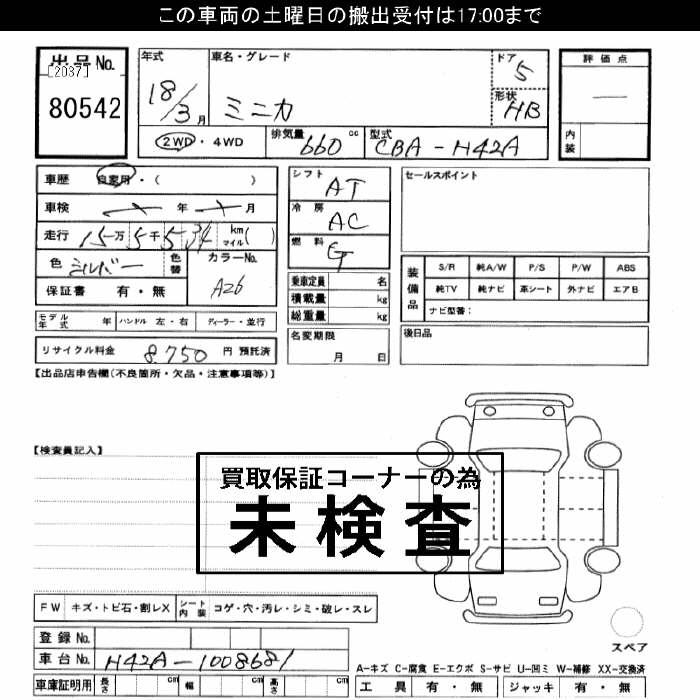 この車両の土曜日の搬出受付は17:00まで
出品No.
[2037]
80542
年式
18/3月
車名・グレード
ミニカ
ドア
5
形状
HB
評価点
—
内装
2WD・4WD
排気量
660 cc
型式
CBA-H42A
車歴 自家用・( )
車検 年 月
走行 15万5千534 km マイル( )
色 シルバー
色替
カラーNo.
A26
保証書 有・無
シフト
AT
冷房
AC
燃料
G
乗車定員 名
積載量 kg
総重量 kg
セールスポイント
装備品
S/R 純A/W P/S P/W ABS
純TV 純ナビ 革シート 外ナビ エアB
ナビ型番:
モデル年式 年 ハンドル 左・右 ディーラー・並行
リサイクル料金 8,750 円 預託済
名変期限
月 日
後日品
【出品店申告欄(不良箇所・欠品・注意事項等)】
【検査員記入】
買取保証コーナーの為
未検査
FW キズ・トビ石・割レX シート内装 コゲ・穴・汚レ・シミ・破レ・スレ
登録No.
車台No. H42A-1008681
車庫証明用 長さ cm 幅 cm 高さ cm
スペア
A-キズ C-腐食 E-エクボ S-サビ U-凹ミ W-補修 XX-交換済
工具 有・無 ジャッキ 有・無